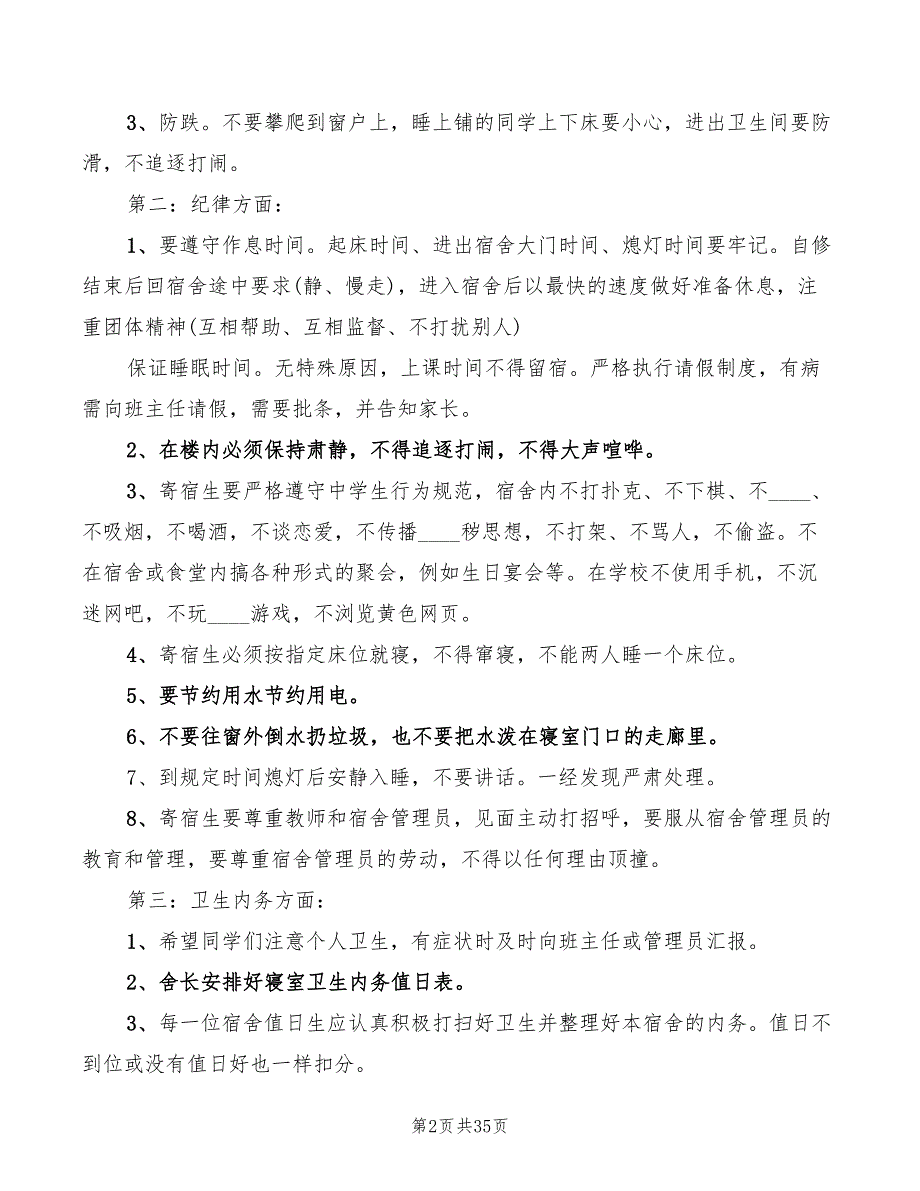 3、防跌。不要攀爬到窗户上，睡上铺的同学上下床要小心，进出卫生间要防
滑，不追逐打闹。
第二：纪律方面：
1、要遵守作息时间。起床时间、进出宿舍大门时间、熄灯时间要牢记。自修
结束后回宿舍途中要求(静、慢走)，进入宿舍后以最快的速度做好准备休息，注
重团体精神(互相帮助、互相监督、不打扰别人)
保证睡眠时间。无特殊原因，上课时间不得留宿。严格执行请假制度，有病
需向班主任请假，需要批条，并告知家长。
2、在楼内必须保持肃静，不得追逐打闹，不得大声喧哗。
3、寄宿生要严格遵守中学生行为规范，宿舍内不打扑克、不下棋、不____、
不吸烟，不喝酒，不谈恋爱，不传播____秽思想，不打架、不骂人，不偷盗。不
在宿舍或食堂内搞各种形式的聚会，例如生日宴会等。在学校不使用手机，不沉
迷网吧，不玩____游戏，不浏览黄色网页。
4、寄宿生必须按指定床位就寝，不得窜寝，不能两人睡一个床位。
5、要节约用水节约用电。
6、不要往窗外倒水扔垃圾，也不要把水泼在寝室门口的走廊里。
7、到规定时间熄灯后安静入睡，不要讲话。一经发现严肃处理。
8、寄宿生要尊重教师和宿舍管理员，见面主动打招呼，要服从宿舍管理员的
教育和管理，要尊重宿舍管理员的劳动，不得以任何理由顶撞。
第三：卫生内务方面：
1、希望同学们注意个人卫生，有症状时及时向班主任或管理员汇报。
2、舍长安排好寝室卫生内务值日表。
3、每一位宿舍值日生应认真积极打扫好卫生并整理好本宿舍的内务。值日不
到位或没有值日好也一样扣分。
第2页共35页